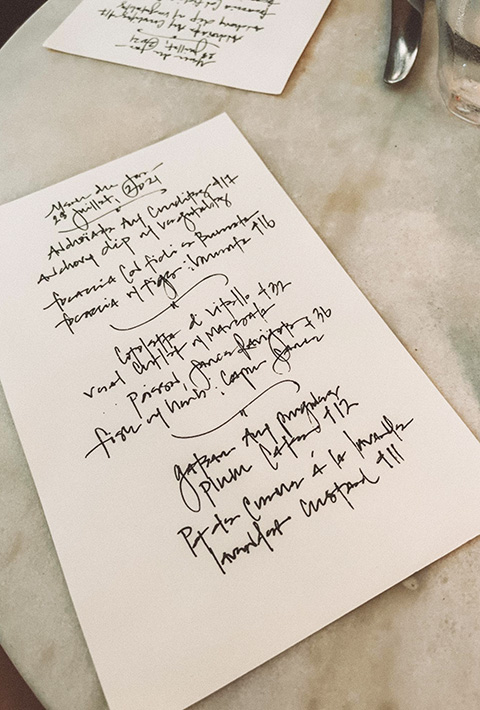 Menu du jour
29 juillet, 2021
Anchoïade aux Crudités +17
Anchovy dip w/ vegetables
focaccia Con fichi e Burrata +16
focaccia w/ figs : burrata
Cotoletta di Vitello +32
veal cutlet w/ Marsala
Poisson, Sauce Ravigote +36
fish w/ herb : caper Sauce
gateau aux prunes
plum Custard +12
Pot de Creme à la lavande
lavender Custard +11
Menu du jour
29 juillet, 2021